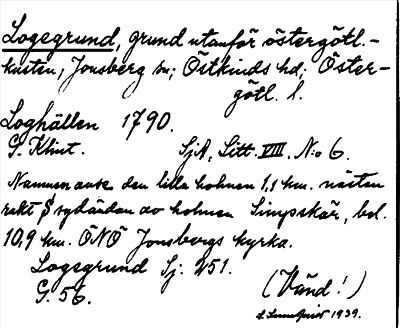 Logegrund, grund utanför östergötl.-
kusten, Jonsberg sn; Östkinds hd; Öster-
götl. l.
Loghällen 1790.
G. Klint. SjA, Litt. VIII. N:o 6.
Namnen avse den lilla holmen 1,1 km. nästan
rakt S sydändan av holmen Simpskär, bel.
10,9 km. ÖNÖ Jonsbergs kyrka.
Logegrund Sj. 251.
G. 56. (Vänd!)
1939.